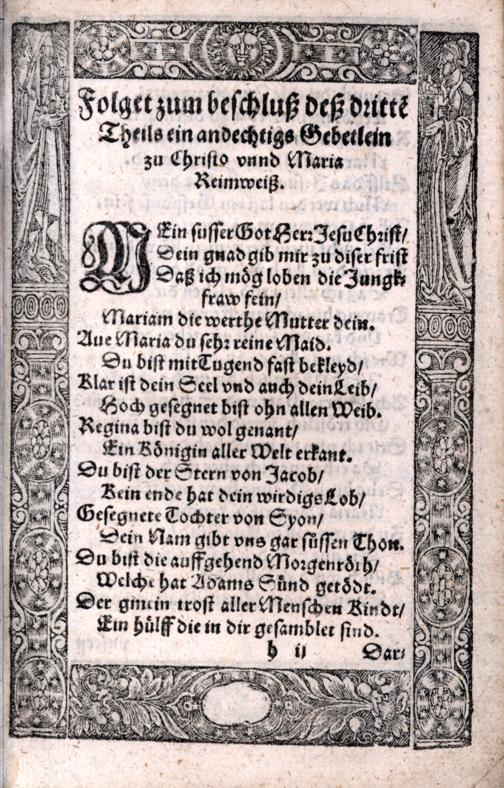 Folget zum beschluß deß drittē
Theils ein andechtigs Gebetlein
zu Christo vnnd Maria
Reimweiß.
MEin susser Got Herr Jesu Christ/
Dein gnad gib mir zu diser frist
Daß ich mög loben die Jungk-
fraw fein/
Mariam die werthe Mutter dein.
Aue Maria du sehr reine Maid.
Du bist mit Tugend fast bekleyd/
Klar ist dein Seel vnd auch dein Leib/
Hoch gesegnet bist ohn allen Weib.
Regina bist du wol genant/
Ein Königin aller Welt erkant.
Du bist der Stern von Jacob/
Kein ende hat dein wirdigs Lob/
Gesegnete Tochter von Syon/
Dein Nam gibt vns gar süssen Thon.
Du bist die auffgehend Morgenröth/
Welche hat Adams Sünd getödt.
Der gmein trost aller Menschen Kindt/
Ein hülff die in dir gesamblet sind.
h ij Dar-